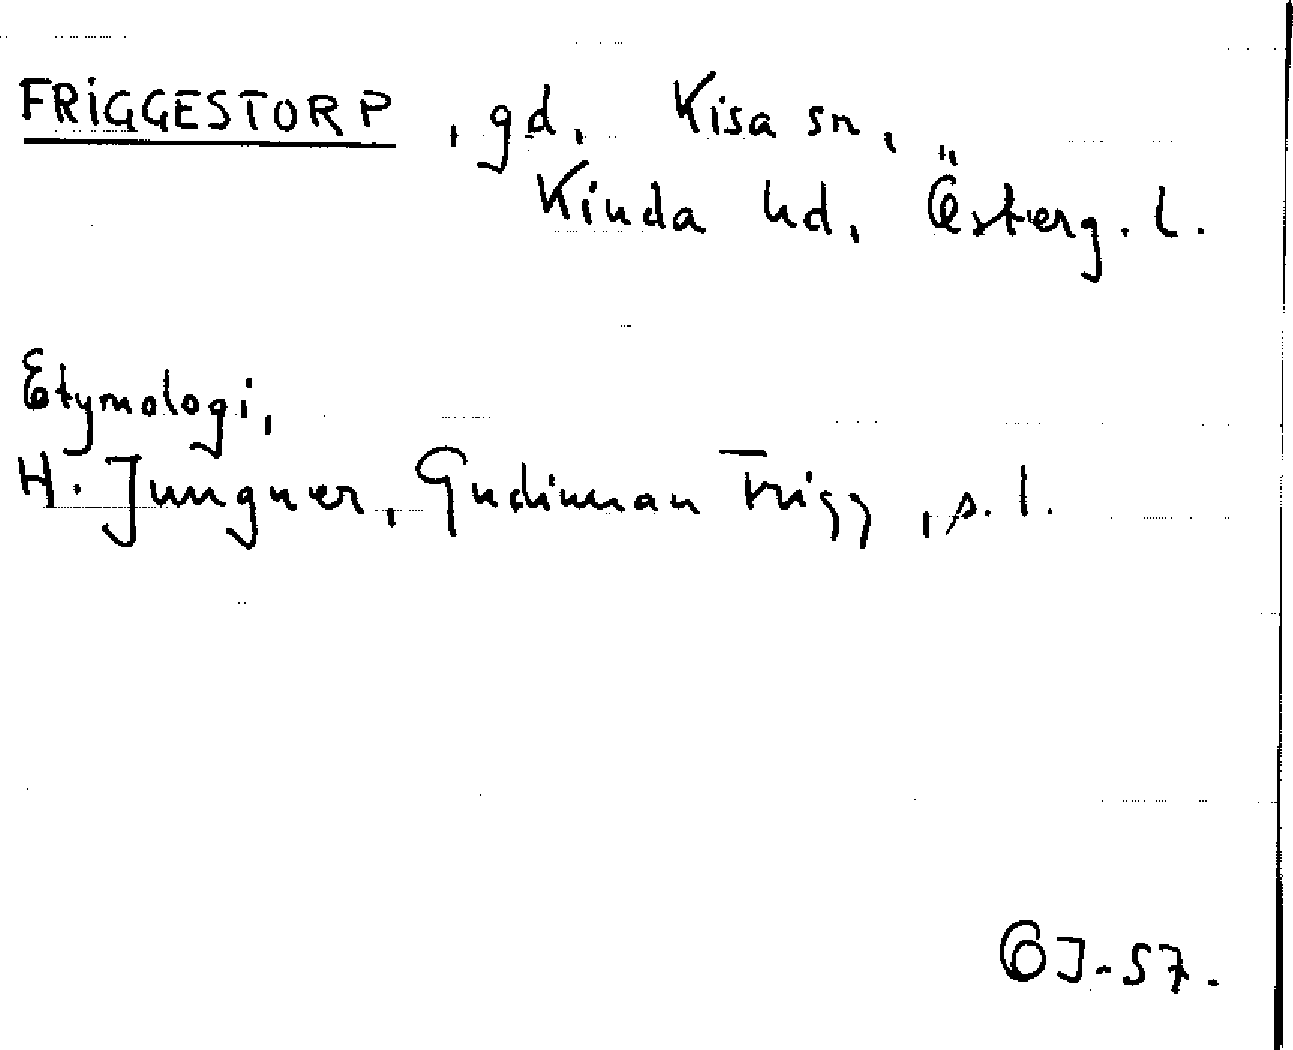 FRIGGESTORP, gd, Kisa sn,
Kinda hd, Österg. l.
Etymologi,
H. Jungner, Gudinnan Frigg, s. 1.
ÖJ-57.